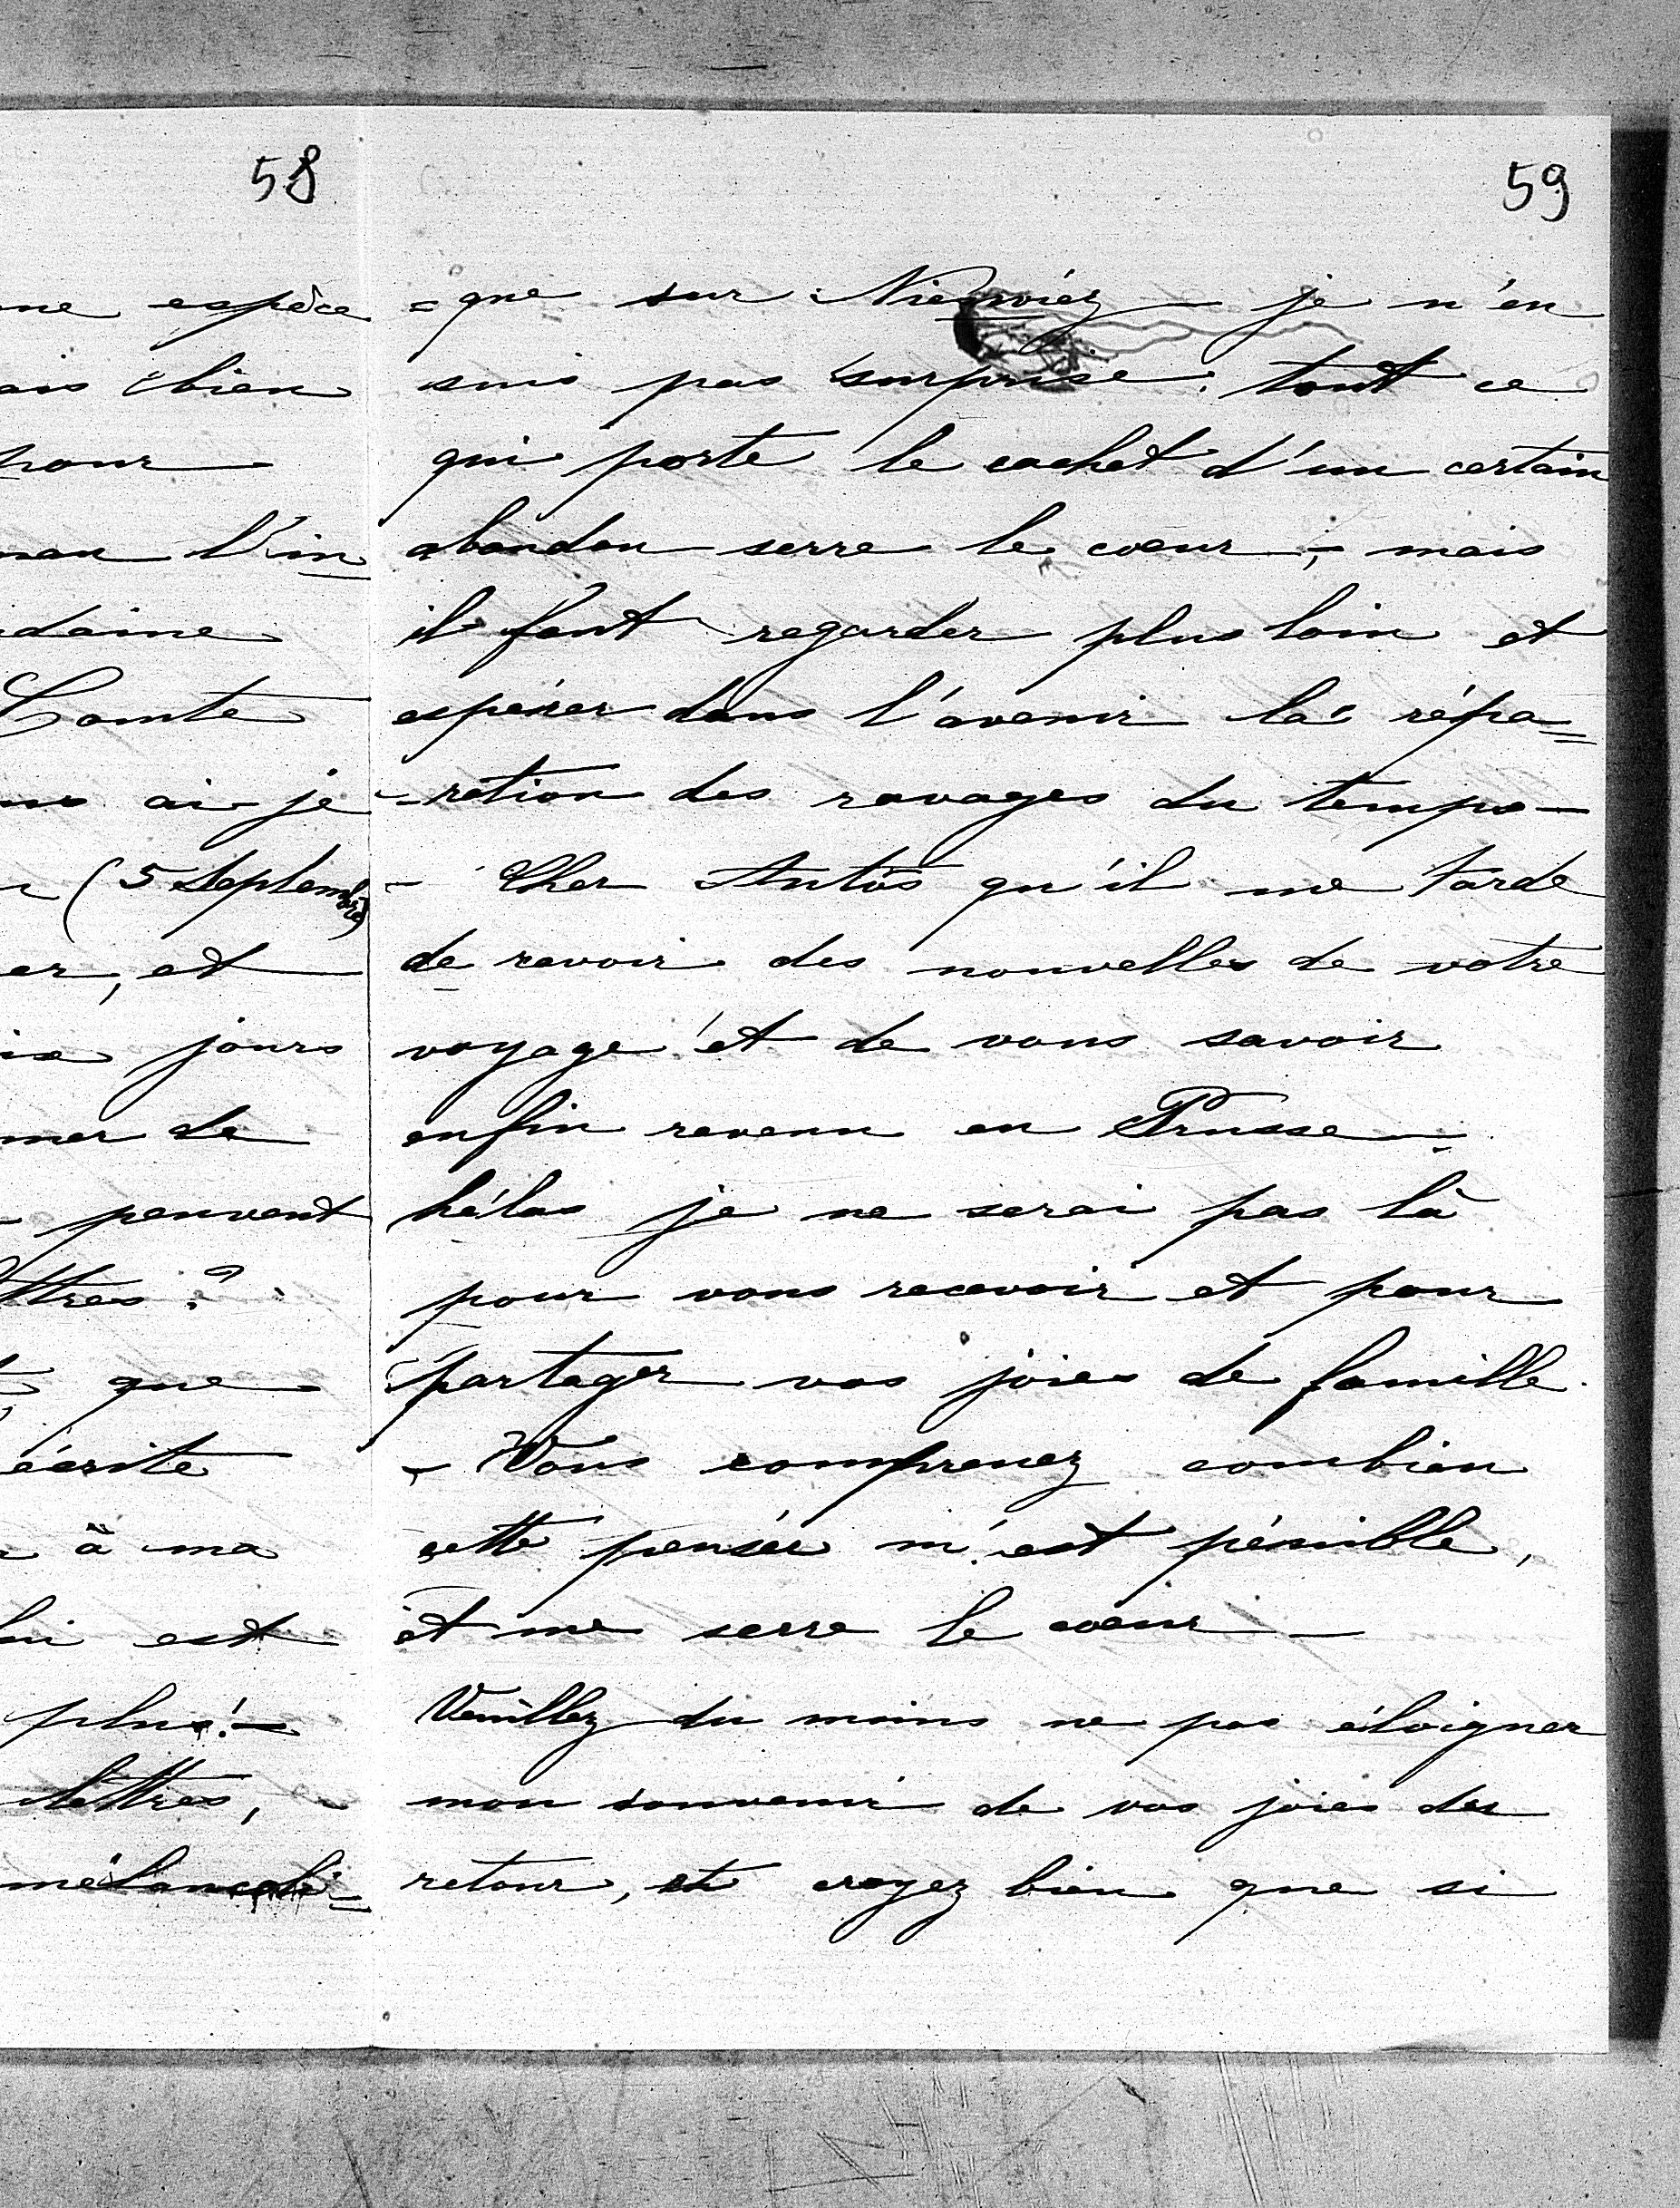 58
ne espèce
ais bien
pour
man l'in
daine
Comte
ai-je
(5 Septembre)
er, et
jours
mer de
peuvent
ttres?
que
écrite
à ma
lui est
plus! —
lettres, -
mélancoli-
59
=que sur Nieswiéz — je n'en
suis pas surprise: tout ce
qui porte le cachet d'un certain
abandon serre le coeur -; mais
il faut regarder plus loin et
espérer dans l'avenir la répa=
=ration des ravages du temps —
- Cher Antôs qu'il me tarde
de ravoir des nouvelles de votre
voyage et de vous savoir
enfin revenu en Prusse —
hélas je ne serai pas là
pour vous recevoir et pour
partager vos joies de famille.
- Vous comprenez combien
cette pensée m'est pénible,
et me serre le coeur —
Veuillez du moins ne pas éloigner
mon souvenir de vos joies du
retour, et croyez bien que si